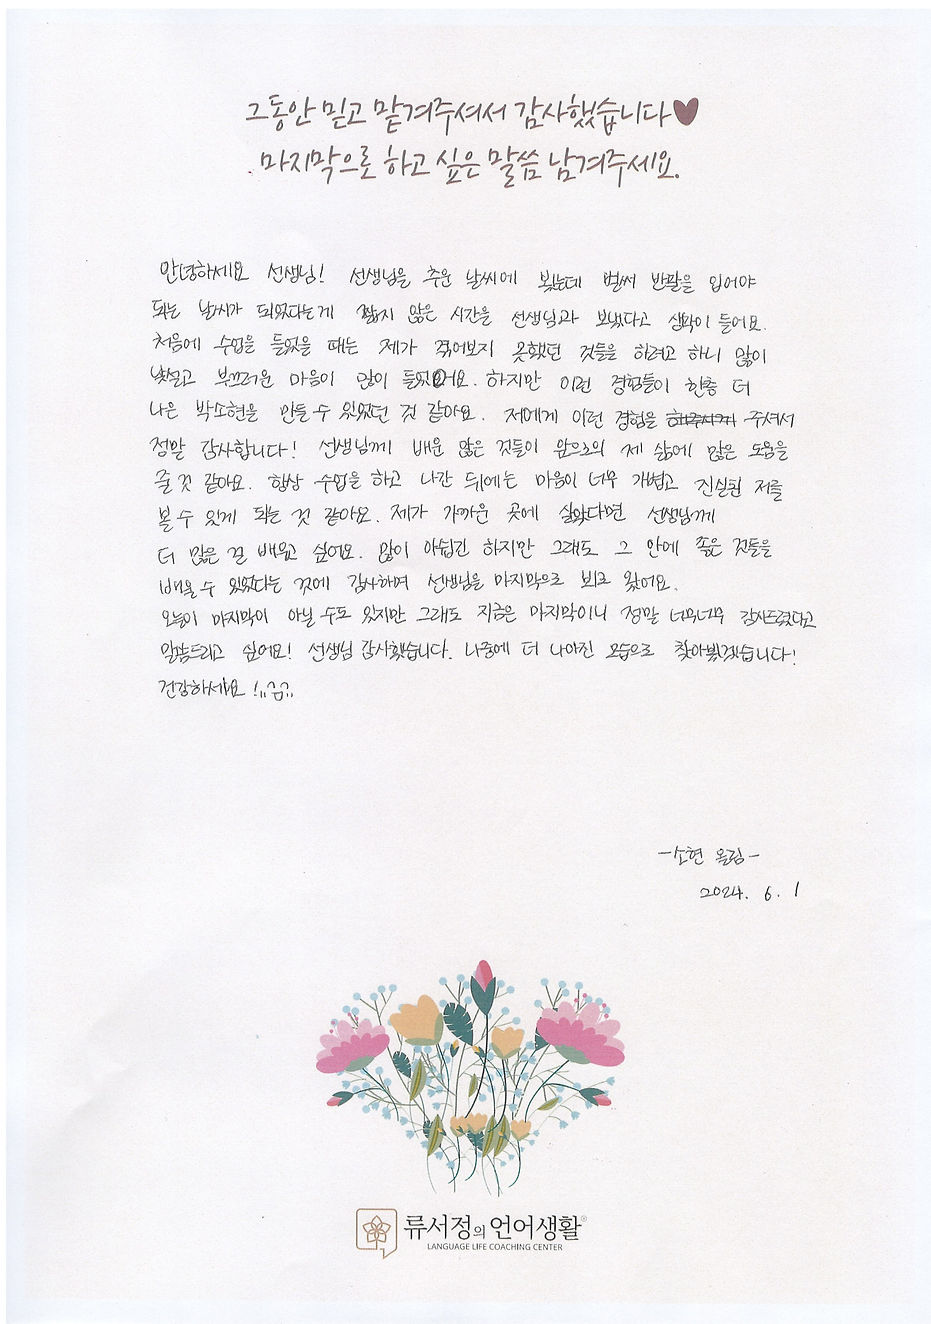 그동안 믿고 맡겨주셔서 감사했습니다♥
마지막으로 하고 싶은 말씀 남겨주세요.
안녕하세요 선생님! 선생님을 추운 날씨에 뵀는데 벌써 반팔을 입어야
되는 날씨가 되었다는게 짧지 않은 시간을 선생님과 보냈다고 생각이 들어요.
처음에 수업을 들었을 때는 제가 겪어보지 못했던 것들을 하려고 하니 많이
낯설고 부끄러운 마음이 많이 들었어요. 하지만 이런 경험들이 한층 더
나은 박소현을 만들 수 있었던 것 같아요. 저에게 이런 경험을 주셔서
정말 감사합니다! 선생님께 배운 많은 것들이 앞으로의 제 삶에 많은 도움을
줄 것 같아요. 항상 수업을 하고 나간 뒤에는 마음이 너무 개볍고 진실된 저를
볼 수 있게 되는 것 같아요. 제가 가까운 곳에 살았다면 선생님께
더 많은 걸 배우고 싶어요. 많이 아쉽긴 하지만 그래도 그 안에 좋은 것들을
배울 수 있었다는 것에 감사하며 선생님을 마지막으로 뵈러 왔어요.
오늘이 마지막이 아닐 수도 있지만 그래도 지금은 마지막이니 정말 너무너무 감사드렸다고
말씀드리고 싶어요! 선생님 감사했습니다. 나중에 더 나아진 모습으로 찾아뵙겠습니다!
건강하세요!
-소현 올림-
2024. 6. 1
류서정의 언어생활®
LANGUAGE LIFE COACHING CENTER